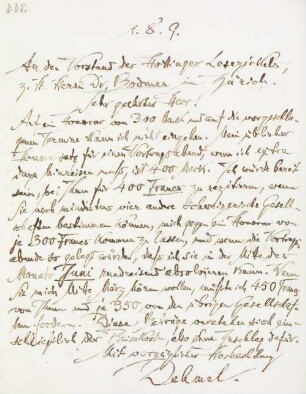 1. 8. 9.
An den Vorstand des Hottinger Lesezirkels,
z. H. Herrn Dr. Bodmer in Zürich.
Sehr geehrter Herr!
Auf ein Honorar von 200 Mark und auf die vorgeschla-
genen Termine kann ich nicht eingehen. Mein üblicher
Honorarsatz für einen Vortragsabend, wenn ich extra
dazu hinreisen muß, ist 400 Mark. Ich würde bereit
sein, bei Ihnen für 400 Francs zu rezitieren, wenn
Sie noch mindestens vier andre Schweizerische Gesell-
schaften bestimmen können, mich gegen ein Honorar von
je 300 Francs kommen zu lassen, und wenn die Vortrags-
abende so gelegt würden, daß ich sie in der Mitte des
Monats Juni hintereinander absolvieren kann. Wenn
Sie mich Mitte März hören wollen, müßte ich 450 Francs
von Ihnen und je 350 von den übrigen Gesellschaf-
ten fordern. Diese Beträge verstehen sich ein-
schließlich der Reisekosten, also ohne Zuschlag dafür.
Mit vorzüglicher Hochachtung
Dehmel.